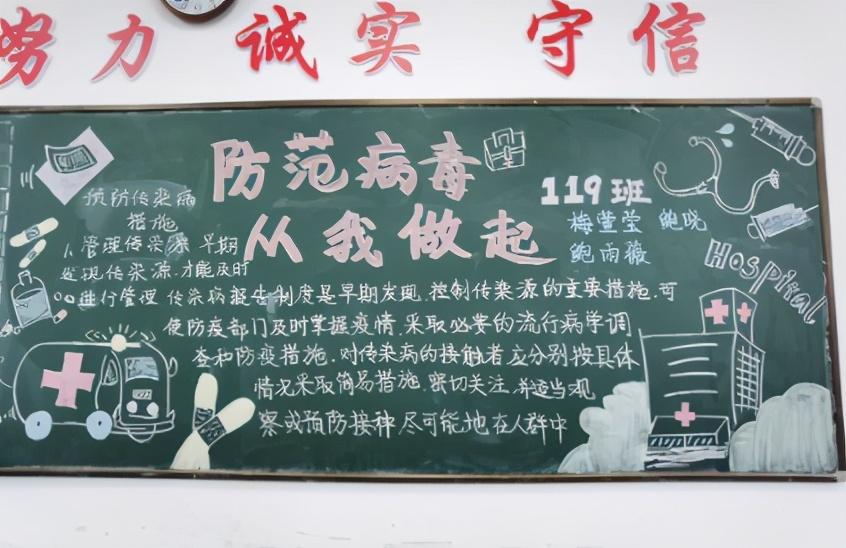 努力 诚实 守信
防范病毒
从我做起
119班
梅莹莹 鲍晓
鲍雨薇
Hospital
预防传染病
措施
1、管理传染源 早期
发现传染源.才能及时
进行管理 传染病报告制度是早期发现.控制传染源的重要措施.可
使防疫部门及时掌握疫情.采取必要的流行病学调
查和防疫措施.对传染病的接触者应分别按具体
情况采取简易措施.密切关注.并适当观
察或预防接种尽可能地在人群中